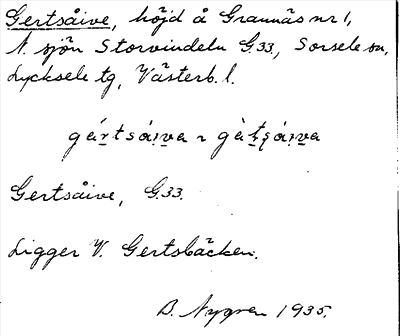 Gertsåive, höjd å Grannäs nr 1,
N. sjön Storvindeln G.33, Sorsele sn,
Lycksele tg, Västerb. l.
Gertsåive, G.33.
Ligger V. Gertsbäcken.
B. Nygren 1935.